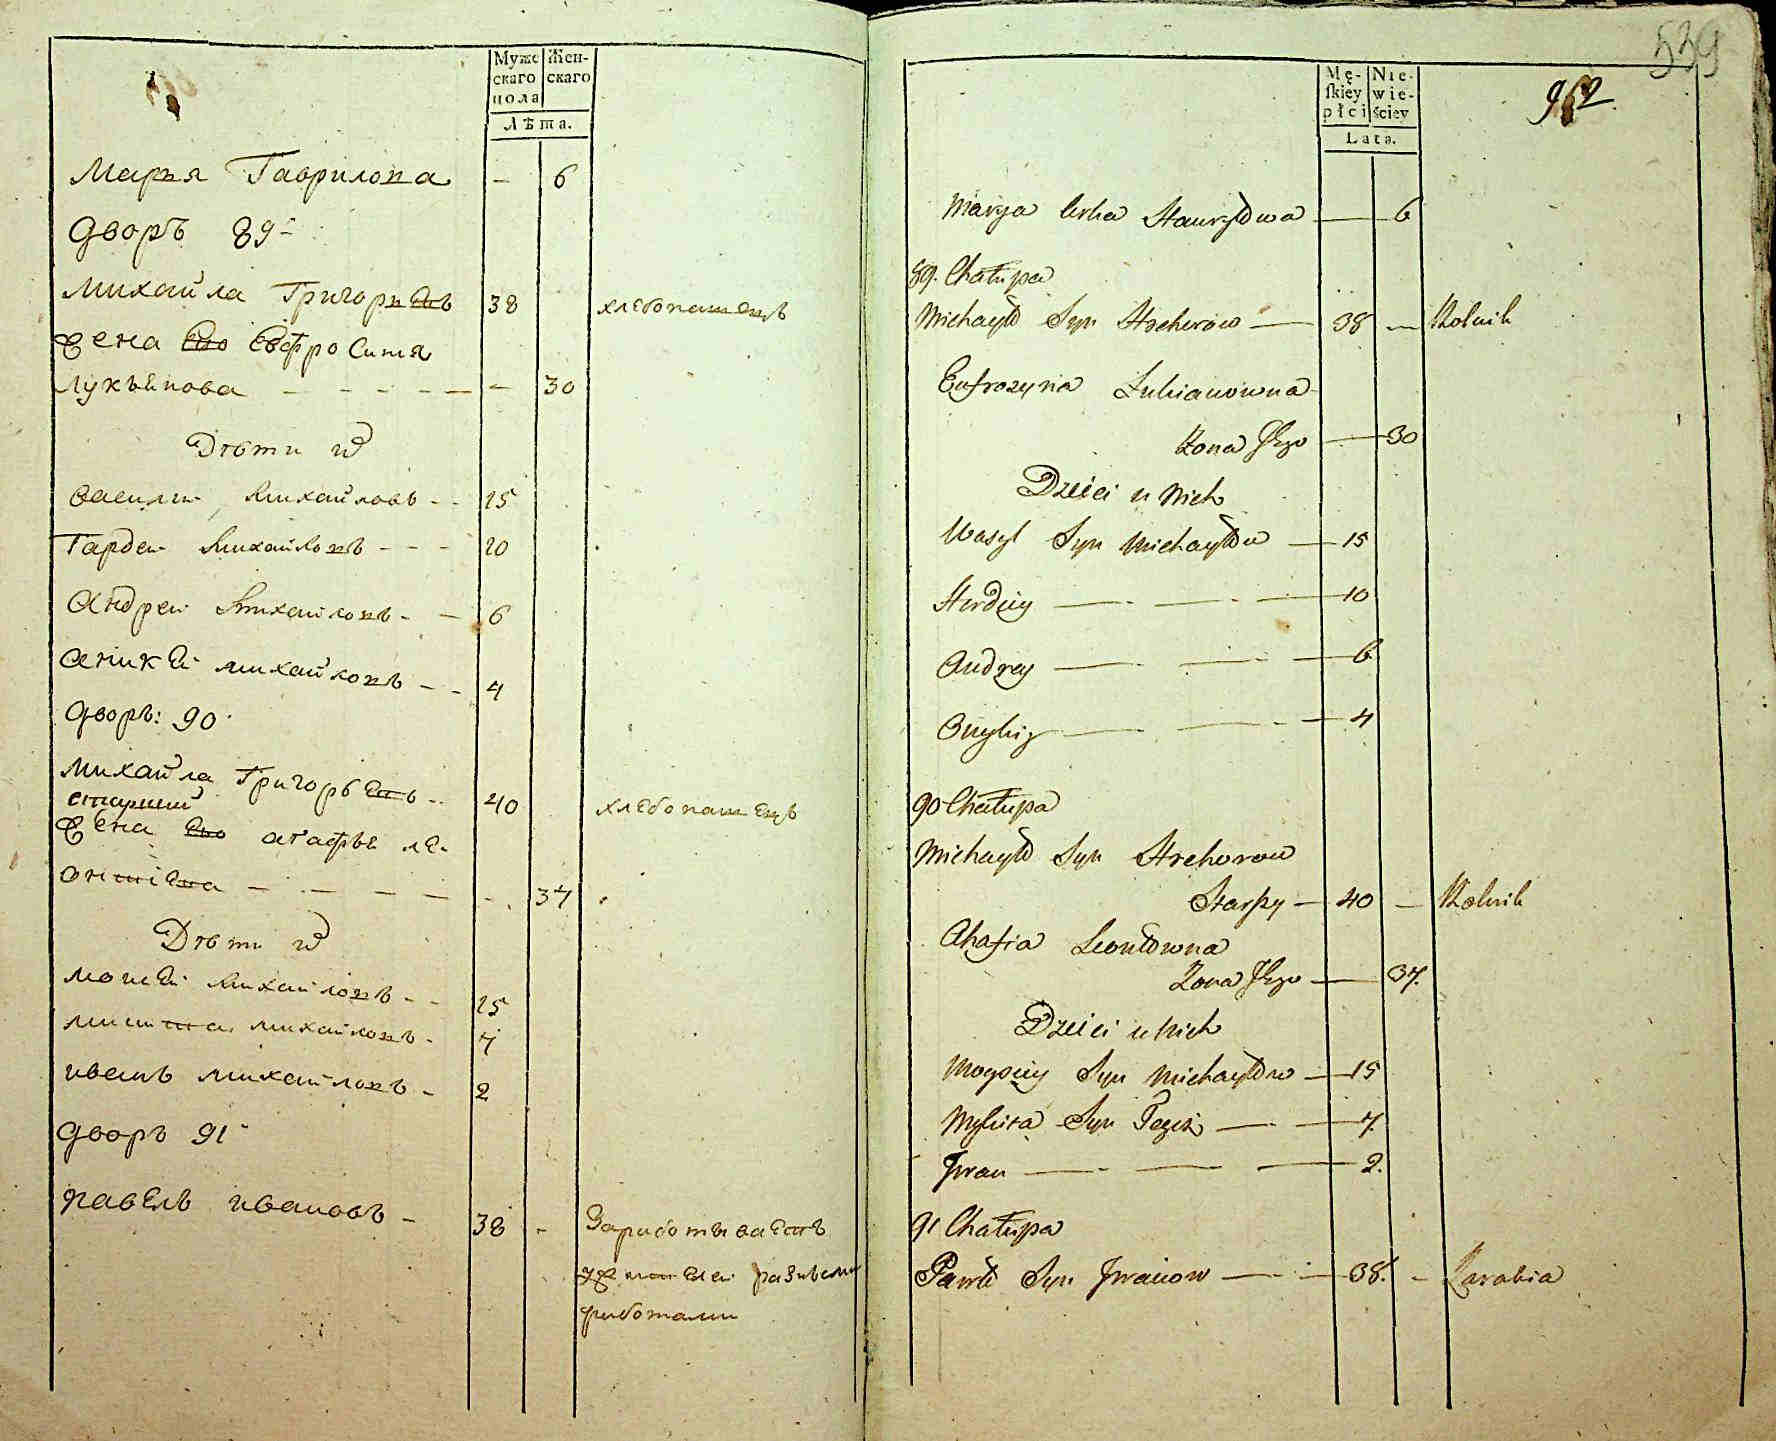 Муже
скаго
пола
Жен-
скаго
Лѣта.
Марья Гаврилова - 6
дворъ 89
Михайла Григорьевъ 38 хлебопашецъ
жена ево Евфросиния
Лукьянова - - - - - - 30
Дѣти их
василий Михайловъ - - 15
Гардей Михайловъ - - - 10
Андрей Михайловъ - - 6
Аникей михайловъ - - 4
дворъ: 90
Михайла Григорьевъ - - 40 хлебопашецъ
старший
жена ево агафья ле-
онтiева - - - - - - 37
Дѣти их
Моисей Михайловъ - - 15
Микита михайловъ - 7
иванъ михайловъ - 2
дворъ 91
павелъ ивановъ - 38 - Зарабоываетъ
разными
работами
539
952
Mę-
skiey
płci
Nie-
wie-
ściey
Lata.
Marya Corka Hawryłowa — 6
89. Chałupa
Michayło Syn Hrehorow — 38 — Rolnik
Eufrozyna Łukianowna
Zona Jego — 30
Dzieci u Nich
Wasyl Syn Michayłow — 15
Hordiey — - — - — 10
Andrey — - — - — 6
Onykiy — - — - — 4
90 Chałupa
Michayło Syn Hrehorow
Starszy — 40 — Rolnik
Ahafia Leontowna
Zona Jego — 37.
Dzieci u Nich
Moysiey Syn Michayłow — 15
Mykita Syn Tegoż — - — 7.
Jwan — - — - — 2.
91 Chałupa
Pawło Syn Jwanow — - — 38. - Zarabia